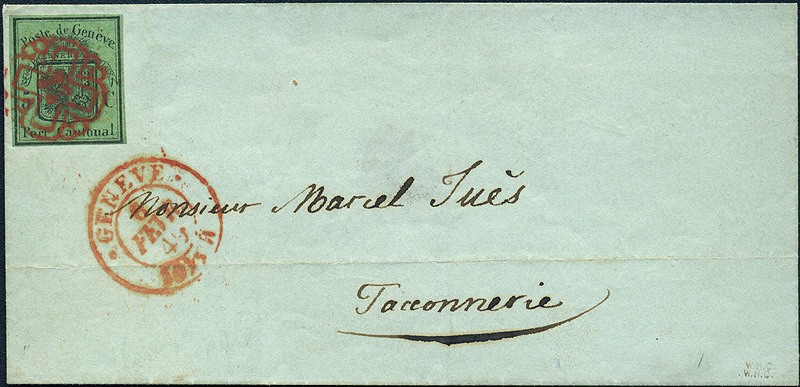 Poste de Genève
Port Cantonal
GENEVE
FEVR
Monsieur Marcel Juès
Tacconnerie
W.H.C.